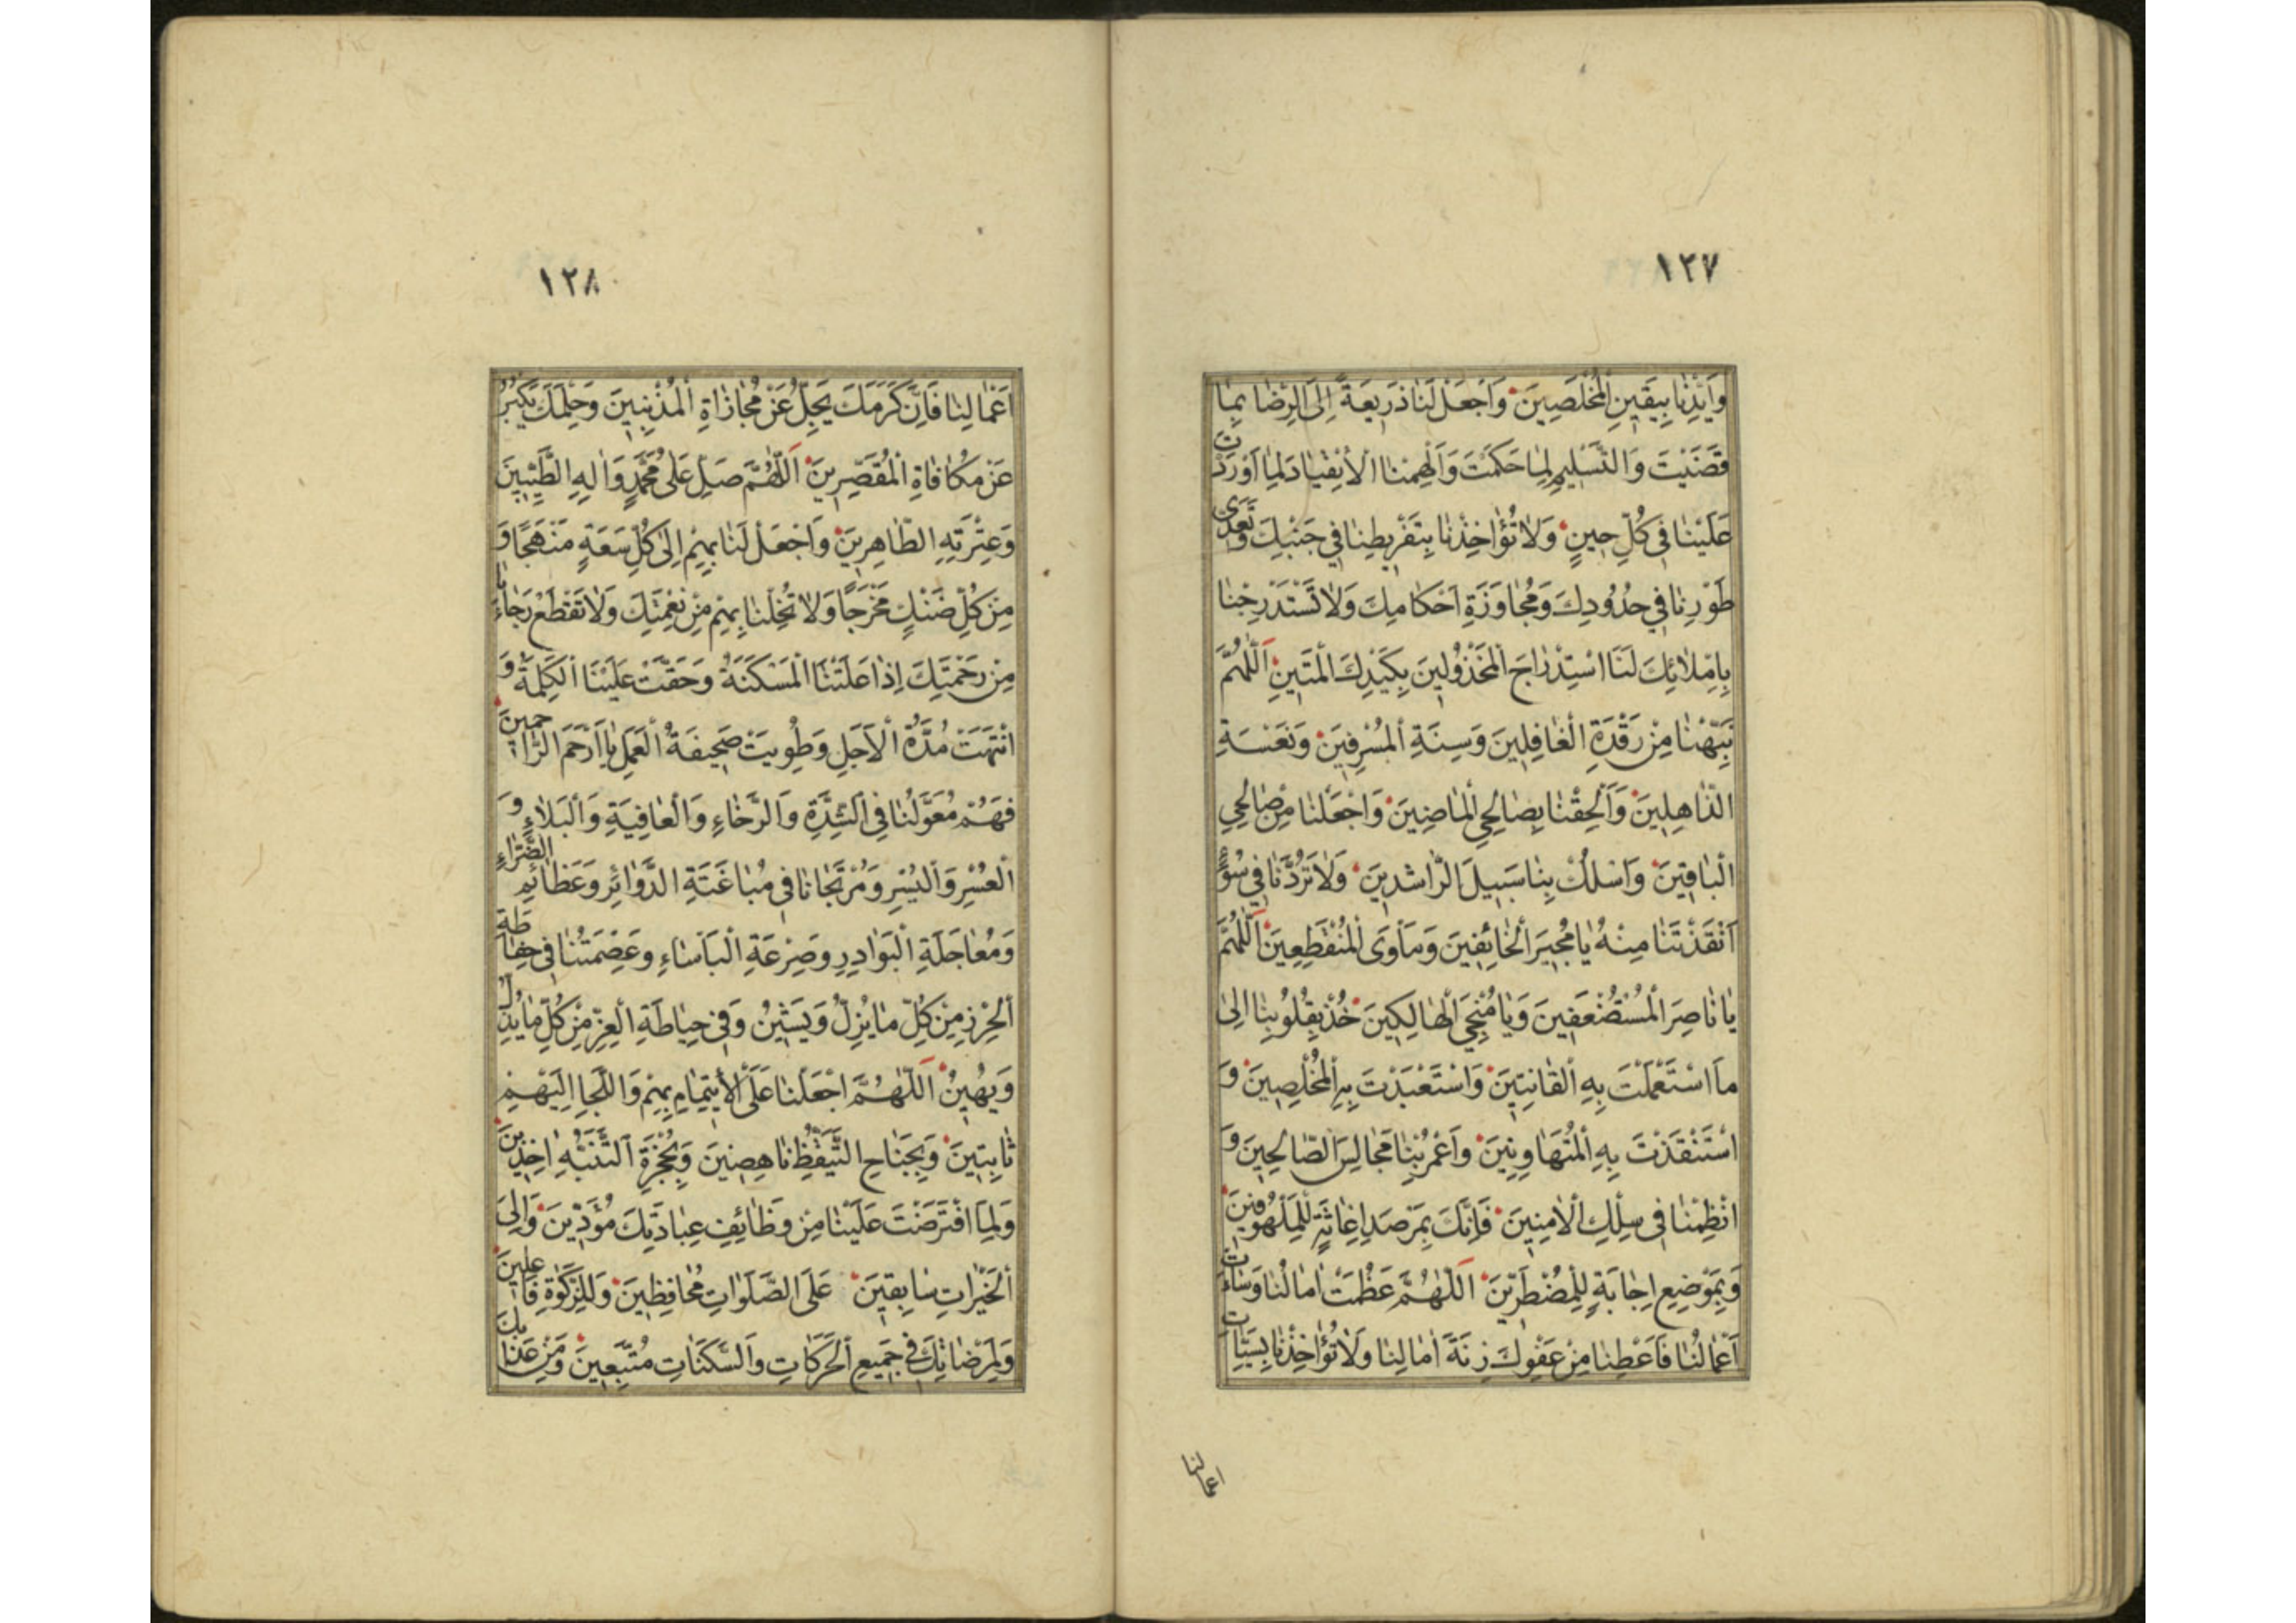 ١٢٧
وَاَيِّدْنٰا بِيَقٖينِ الْمُخْلَصٖينَ وَاجْعَلْ لَنٰا ذَرٖيعَةً اِلَى الرِّضٰا بِمٰا
قَضَيْتَ وَالتَّسْلٖيمِ لِمٰا حَكَمْتَ وَاَلْهِمْنَا الْاِنْقِيٰادَ لِمٰا اَوْرَدْتَ
عَلَيْنٰا فٖي كُلِّ حٖينٍ وَلٰا تُؤٰاخِذْنٰا بِتَفْرٖيطِنٰا فٖي جَنْبِكَ وَتَعَدّٖى
طَوْرِنٰا فٖي حُدُودِكَ وَمُجٰاوَزَةِ اَحْكٰامِكَ وَلٰا تَسْتَدْرِجْنٰا
بِاِمْلٰائِكَ لَنَا اسْتِدْرٰاجَ الْمَخْذُولٖينَ بِكَيْدِكَ الْمَتٖينِ اَللّٰهُمَّ
نَبِّهْنٰا مِنْ رَقْدَةِ الْغٰافِلٖينَ وَسِنَةِ الْمُسْرِفٖينَ وَنَعْسَةِ
الذّٰاهِلٖينَ وَاَلْحِقْنٰا بِصٰالِحِي الْمٰاضٖينَ وَاجْعَلْنٰا مِنْ صٰالِحِي
الْبٰاقٖينَ وَاسْلُكْ بِنٰا سَبٖيلَ الرّٰاشِدٖينَ وَلٰا تَرُدَّنٰا فٖي سُوٓءٍ
اَنْقَذْتَنٰا مِنْهُ يٰا مُجٖيرَ الْخٰائِفٖينَ وَمَأْوَى الْمُنْقَطِعٖينَ اَللّٰهُمَّ
يٰا نٰاصِرَ الْمُسْتَضْعَفٖينَ وَيٰا مُنْجِيَ الْهٰالِكٖينَ خُذْ بِقُلُوبِنٰا اِلىٰ
مَا اسْتَعْمَلْتَ بِهِ الْقٰانِتٖينَ وَاسْتَعْبَدْتَ بِهِ الْمُخْلِصٖينَ وَ
اسْتَنْقَذْتَ بِهِ الْمُتَهٰاوِنٖينَ وَاعْمُرْ بِنٰا مَجٰالِسَ الصّٰالِحٖينَ وَ
انْظِمْنٰا فٖي سِلْكِ الْاٰمِنٖينَ فَاِنَّكَ بِمَرْصَدِ اِغٰاثَةٍ لِلْمَلْهُوفٖينَ
وَبِمَوْضِعِ اِجٰابَةٍ لِلْمُضْطَرّٖينَ اَللّٰهُمَّ عَظُمَتْ اٰمٰالُنٰا وَسٰاءَتْ
اَعْمٰالُنٰا فَاَعْطِنٰا مِنْ عَفْوِكَ زِنَةَ اٰمٰالِنٰا وَلٰا تُؤٰاخِذْنٰا بِسَيِّئٰاتِ
اعمالنا
١٢٨
اَعْمٰالِنٰا فَاِنَّ كَرَمَكَ يَجِلُّ عَنْ مُجٰازٰاةِ الْمُذْنِبٖينَ وَحِلْمَكَ يَكْبُرُ
عَنْ مُكٰافٰاةِ الْمُقَصِّرٖينَ اَللّٰهُمَّ صَلِّ عَلىٰ مُحَمَّدٍ وَاٰلِهِ الطَّيِّبٖينَ
وَعِتْرَتِهِ الطّٰاهِرٖينَ وَاجْعَلْ لَنٰا بِهِمْ اِلىٰ كُلِّ سَعَةٍ مَنْهَجًا وَ
مِنْ كُلِّ ضَنْكٍ مَخْرَجًا وَلٰا تُخْلِنٰا بِهِمْ مِنْ نِعْمَتِكَ وَلٰا تَقْطَعْ رَجٰاءَنٰا
مِنْ رَحْمَتِكَ اِذٰا عَلَتْنَا الْمَسْكَنَةُ وَحَقَّتْ عَلَيْنَا الْكَلِمَةُ وَ
انْتَهَتْ مُدَّةُ الْاَجَلِ وَطُوِيَتْ صَحٖيفَةُ الْعَمَلِ يٰا اَرْحَمَ الرّٰاحِمٖينَ
فَهُمْ مُعَوَّلُنٰا فِي الشِّدَّةِ وَالرَّخٰاءِ وَالْعٰافِيَةِ وَالْبَلٰاءِ وَ
الْعُسْرِ وَالْيُسْرِ وَمُرْتَجٰانٰا فٖي مُبٰاغَتَةِ الدَّوٰائِرِ وَعَظٰائِمِ الضَّرّٰاءِ
وَمُعٰاجَلَةِ الْبَوٰادِرِ وَصِرْعَةِ الْبَأْسٰاءِ وَعِصْمَتُنٰا فٖي حِفٰاظَةِ
الْحِرْزِ مِنْ كُلِّ مٰا يُزِلُّ وَيَشٖينُ وَفٖي حِيٰاطَةِ الْعِزِّ مِنْ كُلِّ مٰا يُذِلُّ
وَيُهٖينُ اَللّٰهُمَّ اجْعَلْنٰا عَلَى الْاِيتِمٰامِ بِهِمْ وَاللَّجَاِ اِلَيْهِمْ
ثٰابِتٖينَ وَبِجَنٰاحِ التَّيَقُّظِ نٰاهِضٖينَ وَبِحُجْزَةِ التَّنَبُّهِ اٰخِذٖينَ
وَلِمَا افْتَرَضْتَ عَلَيْنٰا مِنْ وَظٰائِفِ عِبٰادَتِكَ مُؤَدّٖينَ وَاِلَى
الْخَيْرٰاتِ سٰابِقٖينَ عَلَى الصَّلَوٰاتِ مُحٰافِظٖينَ وَلِلزَّكٰوةِ فٰاعِلٖينَ
وَلِمَرْضٰاتِكَ فٖي جَمٖيعِ الْحَرَكٰاتِ وَالسَّكَنٰاتِ مُتَّبِعٖينَ وَمِنْ عَذٰابِكَ